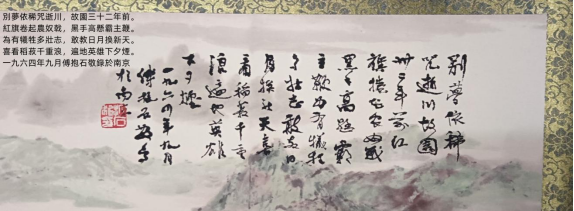 別夢依稀咒逝川，故園三十二年前。
紅旗卷起農奴戟，黑手高懸霸主鞭。
為有犧牲多壯志，敢教日月換新天。
喜看稻菽千重浪，遍地英雄下夕煙。
一九六四年九月傅抱石敬錄於南京
別夢依稀
咒逝川故園
卅二年前紅
旗卷起農奴戟
黑手高懸霸
主鞭為有犧牲
多壯志敢教日
月換新天喜
看稻菽千重
浪遍地英雄
下夕煙
一九六四年九月
傅抱石敬
於南